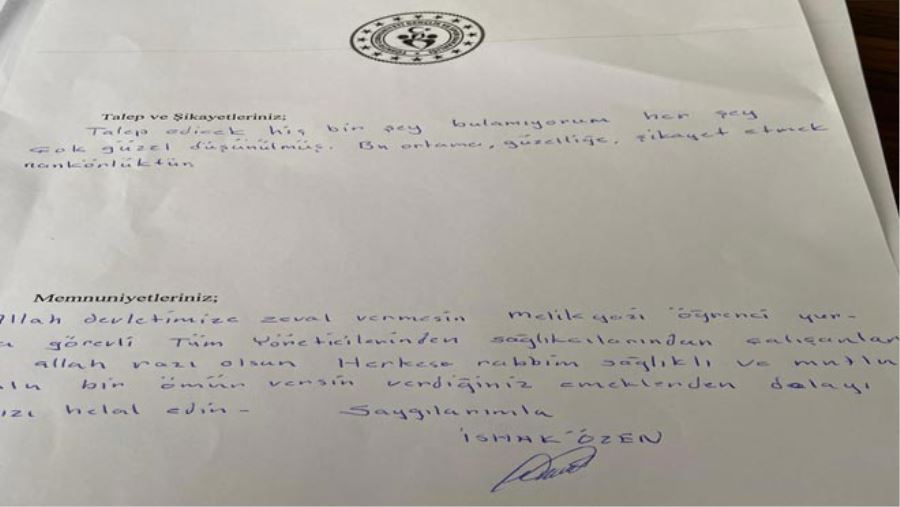 Talep ve Şikayetleriniz;
Talep edicek hiç bir şey bulamıyorum her şey
çok güzel düşünülmüş. Bu ortama, güzelliğe, şikayet etmek
nankörlüktür
Memnuniyetleriniz;
Allah devletimize zeval vermesin melikgazi öğrenci yur-
görevli Tüm Yöneticilerinden sağlıkcılarından çalışanlar
allah razı olsun Herkese rabbim sağlıklı ve mutlu
bir ömür versin verdiğiniz emeklerden dolayı
helal edin -
Saygılarımla
İSHAK ÖZEN